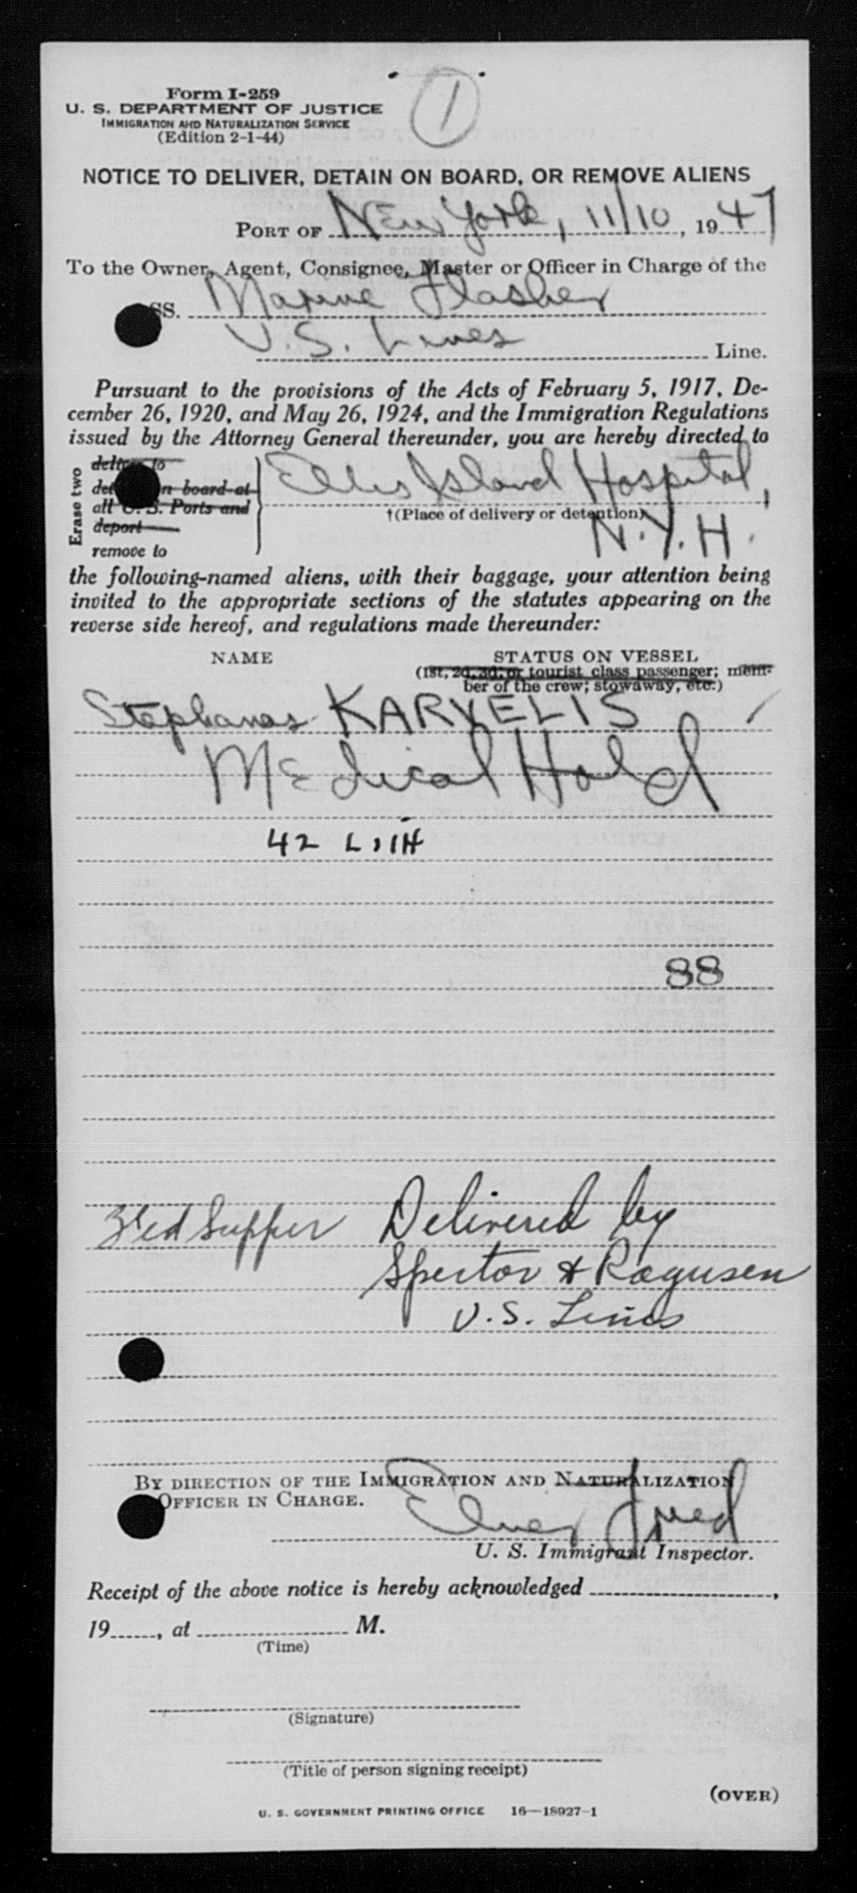 Form I-259
U. S. DEPARTMENT OF JUSTICE
IMMIGRATION AND NATURALIZATION SERVICE
(Edition 2-1-44)
1
NOTICE TO DELIVER, DETAIN ON BOARD, OR REMOVE ALIENS
PORT OF New York, 11/10, 1947
To the Owner, Agent, Consignee, Master or Officer in Charge of the
SS. Marine Flasher
U.S. Lines Line.
Pursuant to the provisions of the Acts of February 5, 1917, De-
cember 26, 1920, and May 26, 1924, and the Immigration Regulations
issued by the Attorney General thereunder, you are hereby directed to
Erase two
deliver to
detain on board at
all U. S. Ports and
deport
remove to
Ellis Island Hospital,
†(Place of delivery or detention)
N.Y.H.
the following-named aliens, with their baggage, your attention being
invited to the appropriate sections of the statutes appearing on the
reverse side hereof, and regulations made thereunder:
NAME STATUS ON VESSEL
(1st, 2d, 3d, or tourist class passenger; mem-
ber of the crew; stowaway, etc.)
Stephanas KARVELIS
Medical Hold
42 Lith
88
Supper Delivered by
Spector & Ragusen
U.S. Lines
BY DIRECTION OF THE IMMIGRATION AND NATURALIZATION
OFFICER IN CHARGE.
U. S. Immigrant Inspector.
Receipt of the above notice is hereby acknowledged ,
19 , at M.
(Time)
(Signature)
(Title of person signing receipt)
(OVER)
U. S. GOVERNMENT PRINTING OFFICE 16—18927-1